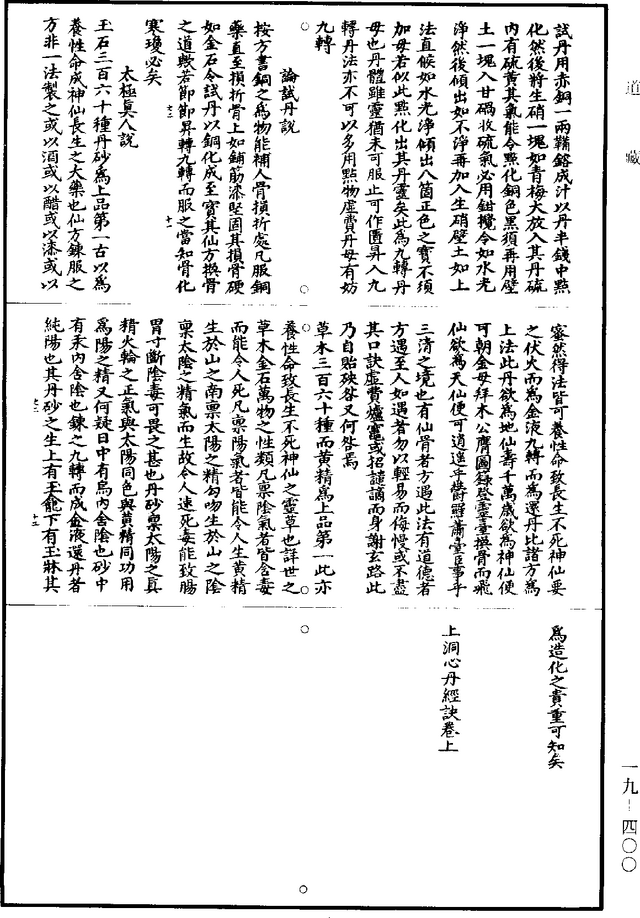 道藏
試丹用赤銅一兩鞴鎔成汁以丹半錢中點
化然後將生硝一塊如青梅大放入其丹硫
內有硫黃其氣能令點化銅色黑須再用壁
土一塊入甘鍋收硫氣必用鉗攪令如水光
淨然後傾出如不淨再加入生硝壁土如上
法直候如水光淨傾出八箇正色之寶不須
加母若似此點化出其丹靈矣此為九轉丹
母也丹體雖靈猶未可服止可作匱昇入九
轉丹法亦不可以多用點物虛費丹母有妨
九轉
論試丹說
按方書銅之為物能補人骨損折處凡服銅
藥直至損折骨上如鋪筋漆堅固其損骨硬
如金石令試丹以銅化成至寶其仙方換骨
之道毀若節節昇轉九轉而服之當知骨化
寒瓊必矣
太極真人說
玉石三百六十種丹砂為上品第一古以為
養性命成神仙長生之大藥也仙方鍊服之
方非一法製之或以酒或以醋或以漆或以
蜜然得法皆可養性命致長生不死神仙要
之伏火而為金液九轉而為還丹比諸方為
上法此丹欲為地仙壽千萬歲欲為神仙便
可朝金母拜木公膺圖錄登靈臺換骨而飛
仙欲為天仙便可逍遙乎欝羅蕭臺臣事乎
三清之境也有仙骨者方遇此法有道德者
方遇至人如遇者勿以輕易而侮慢或不盡
其口訣虛費爐竈或招譴謫而身謝玄路此
乃自貽殃咎又何咎焉
草木三百六十種而黃精為上品第一此亦
養性命致長生不死神仙之靈草也詳世之
草木金石萬物之性類凡稟陰氣者皆含毒
而能令人死凡稟陽氣者皆能令人生黃精
生於山之南稟太陽之精勾吻生於山之陰
稟太陰之精氣而生故令人速死毒能致腸
胃寸斷陰毒可畏之甚也丹砂稟太陽之真
精火輪之正氣與太陽同色與黃精同功用
為陽之精又何疑日中有烏內含陰也砂中
有汞內含陰也鍊之九轉而成金液還丹者
純陽也其丹砂之生上有玉龕下有玉牀其
為造化之貴重可知矣
上洞心丹經訣卷上
一九-四〇〇